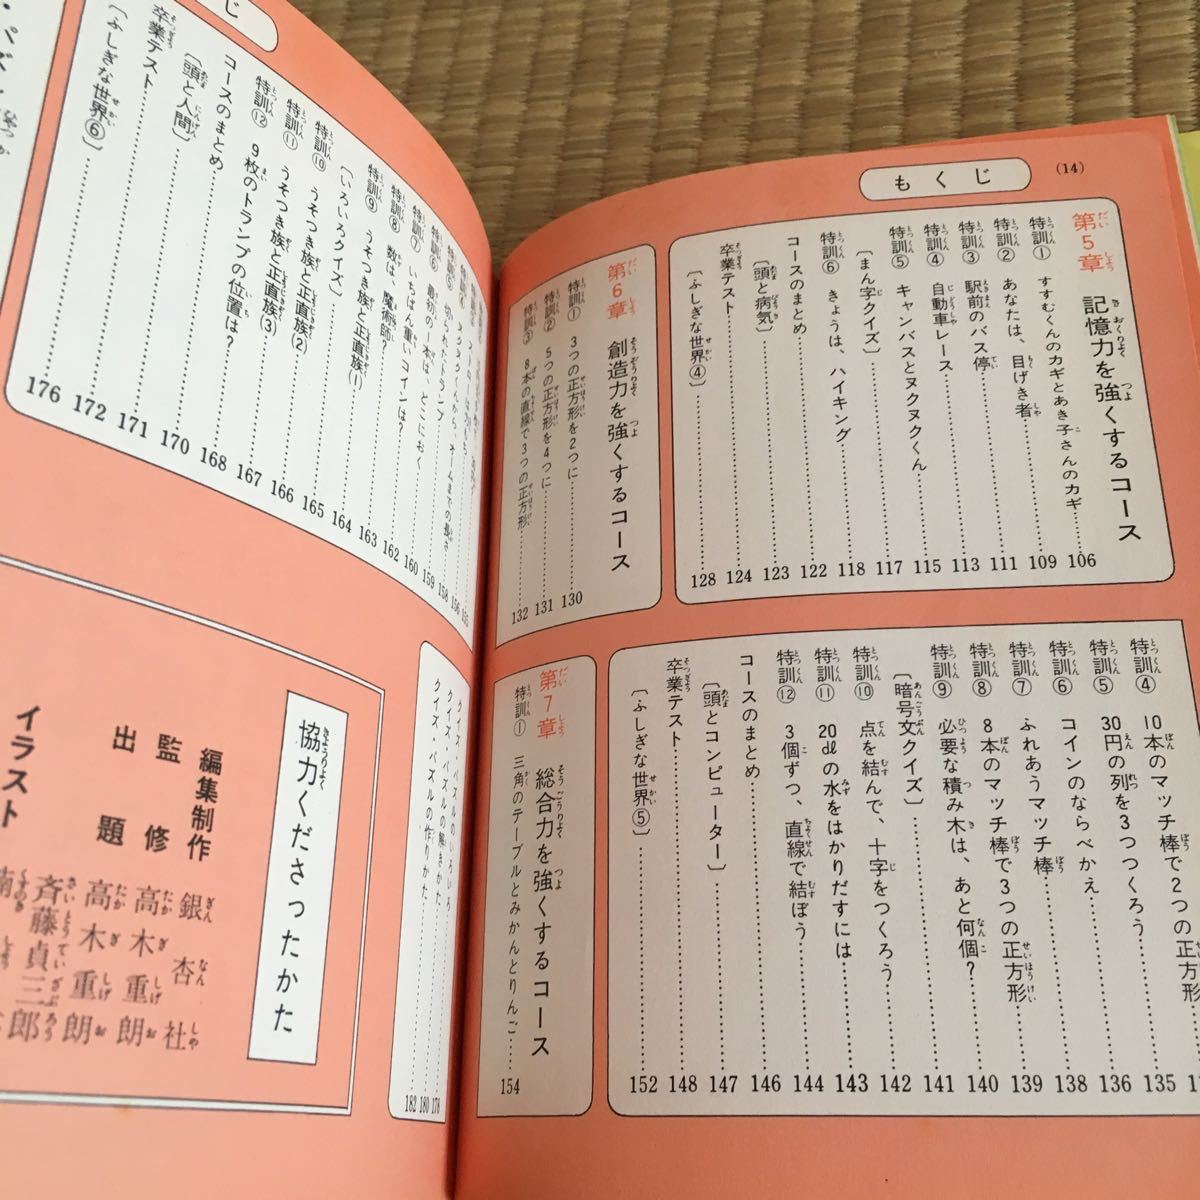 (14)
もくじ
第5章 記憶力を強くするコース
特訓① すすむくんのカギとあき子さんのカギ……106
特訓② あなたは、目げき者……109
特訓③ 駅前のバス停……111
特訓④ 自動車レース……113
特訓⑤ キャンバスとヌクヌクくん……115
〔まん字クイズ〕……117
特訓⑥ きょうは、ハイキング……118
コースのまとめ……122
〔頭と病気〕……123
卒業テスト……124
〔ふしぎな世界④〕……128
第6章 創造力を強くするコース
特訓① 3つの正方形を2つに……130
特訓② 5つの正方形を4つに……131
特訓③ 8本の直線で3つの正方形……132
特訓④ 10本のマッチ棒で2つの正方
特訓⑤ 30円の列を3つつくろう……135
特訓⑥ コインのならべかえ……136
特訓⑦ ふれあうマッチ棒……138
特訓⑧ 8本のマッチ棒で3つの正方形……139
特訓⑨ 必要な積み木は、あと何個?……140
〔暗号文クイズ〕……141
特訓⑩ 点を結んで、十字をつくろう……142
特訓⑪ 20dlの水をはかりだすには……143
特訓⑫ 3個ずつ、直線で結ぼう……144
コースのまとめ……146
〔頭とコンピューター〕……147
卒業テスト……148
〔ふしぎな世界⑤〕……152
第7章 総合力を強くするコース
特訓① 三角のテーブルとみかんとりんご……154
じ
155
156
特訓④
158
特訓⑤ 切られたトランプ……159
特訓⑥ 最初の一本は、どこにおく……160
特訓⑦ いちばん重いコインは?……162
特訓⑧ 数は、魔術師?……163
特訓⑨ うそつき族と正直族(1)……164
〔いろいろクイズ〕……165
特訓⑩ うそつき族と正直族(2)……166
特訓⑪ うそつき族と正直族(3)……167
特訓⑫ 9枚のトランプの位置は?……168
コースのまとめ……170
〔頭と人間〕……171
卒業テスト……172
〔ふしぎな世界⑥〕……176
クイズ・パズルのいろいろ……178
クイズ・パズルの解きかた……180
クイズ・パズルの作りかた……182
協力くださったかた
編集制作 銀杏社
監修 高木重朗
出題 高木重朗
斉藤貞三郎
イラスト